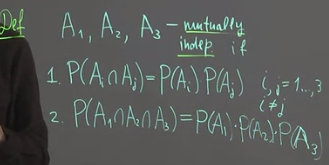 Def A₁, A₂, A₃ – mutually
indep if
1. P(Aᵢ∩Aⱼ)=P(Aᵢ) P(Aⱼ) i,j=1...,3
i≠j
2. P(A₁∩A₂∩A₃)=P(A₁)·P(A₂)·P(A₃)